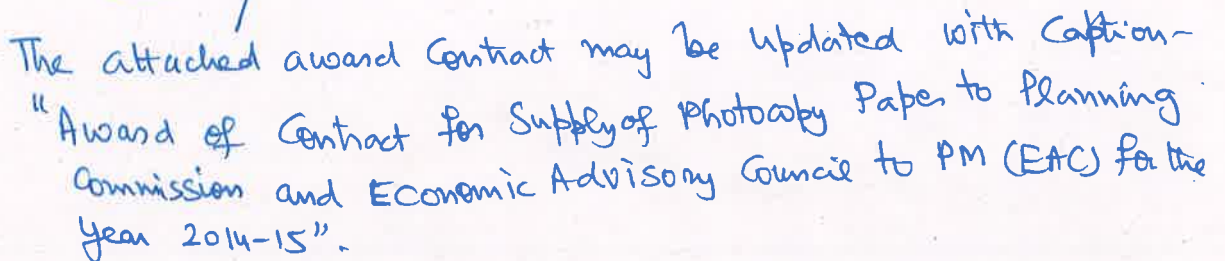 The attached award Contract may be updated with Caption-
"Award of Contract for Supply of Photocopy Paper to Planning
Commission and Economic Advisory Council to PM (EAC) for the
year 2014-15".